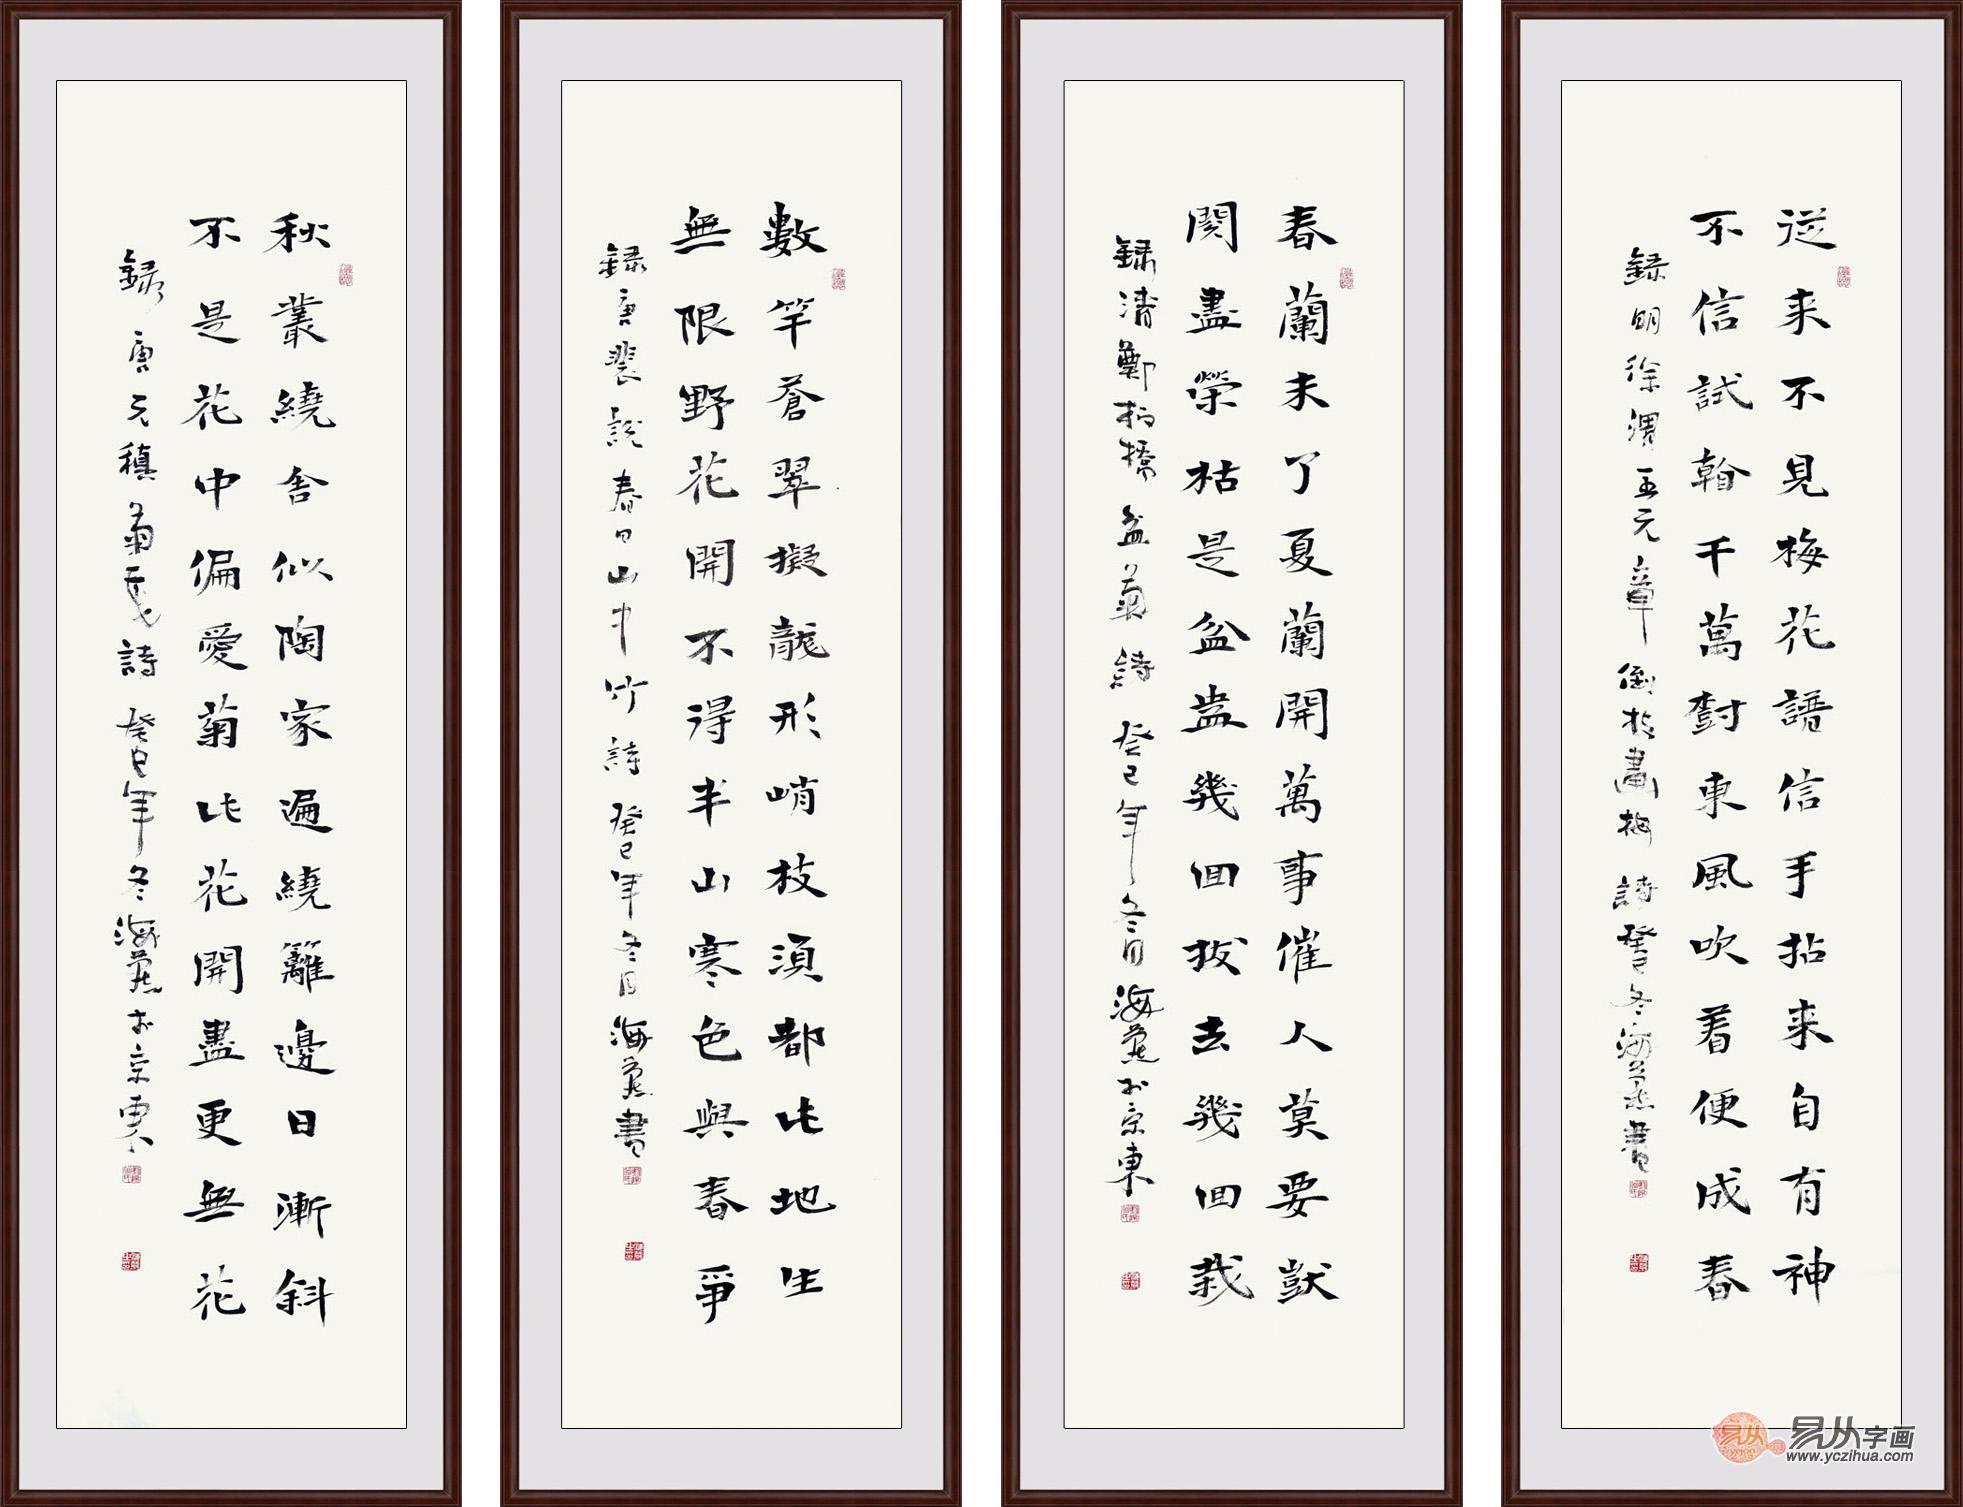 從来不見梅花譜信手拈来自有神
不信試看千萬樹東風吹着便成春
録明徐渭王元章倒枝畫梅詩癸巳冬海燕書
春蘭未了夏蘭開萬事催人莫要獃
閱盡榮枯是盆盎幾回拔去幾回栽
録清鄭板橋盆蘭詩癸巳年冬月海燕於京東
數竿蒼翠擬龍形峭枝須都此地生
無限野花開不得半山寒色與春爭
録唐裴説春日山中竹詩癸巳年冬月海燕書
秋叢繞舍似陶家遍繞籬邊日漸斜
不是花中偏愛菊此花開盡更無花
録唐元稹菊花詩癸巳年冬海燕於京東
易从
yiejon
易从字画
www.yczihua.com